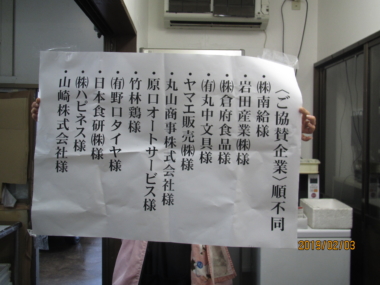 〈ご協賛企業〉順不同
・㈱南給様
・岩田産業㈱様
・㈱倉府食品様
・㈲丸中文具様
・ヤマエ販売㈱様
・丸山商事株式会社様
・原口オートサービス様
・竹林鶏様
・㈲野口タイヤ様
・日本食研㈱様
・㈱ハピネス様
・山崎株式会社様
2019/02/03